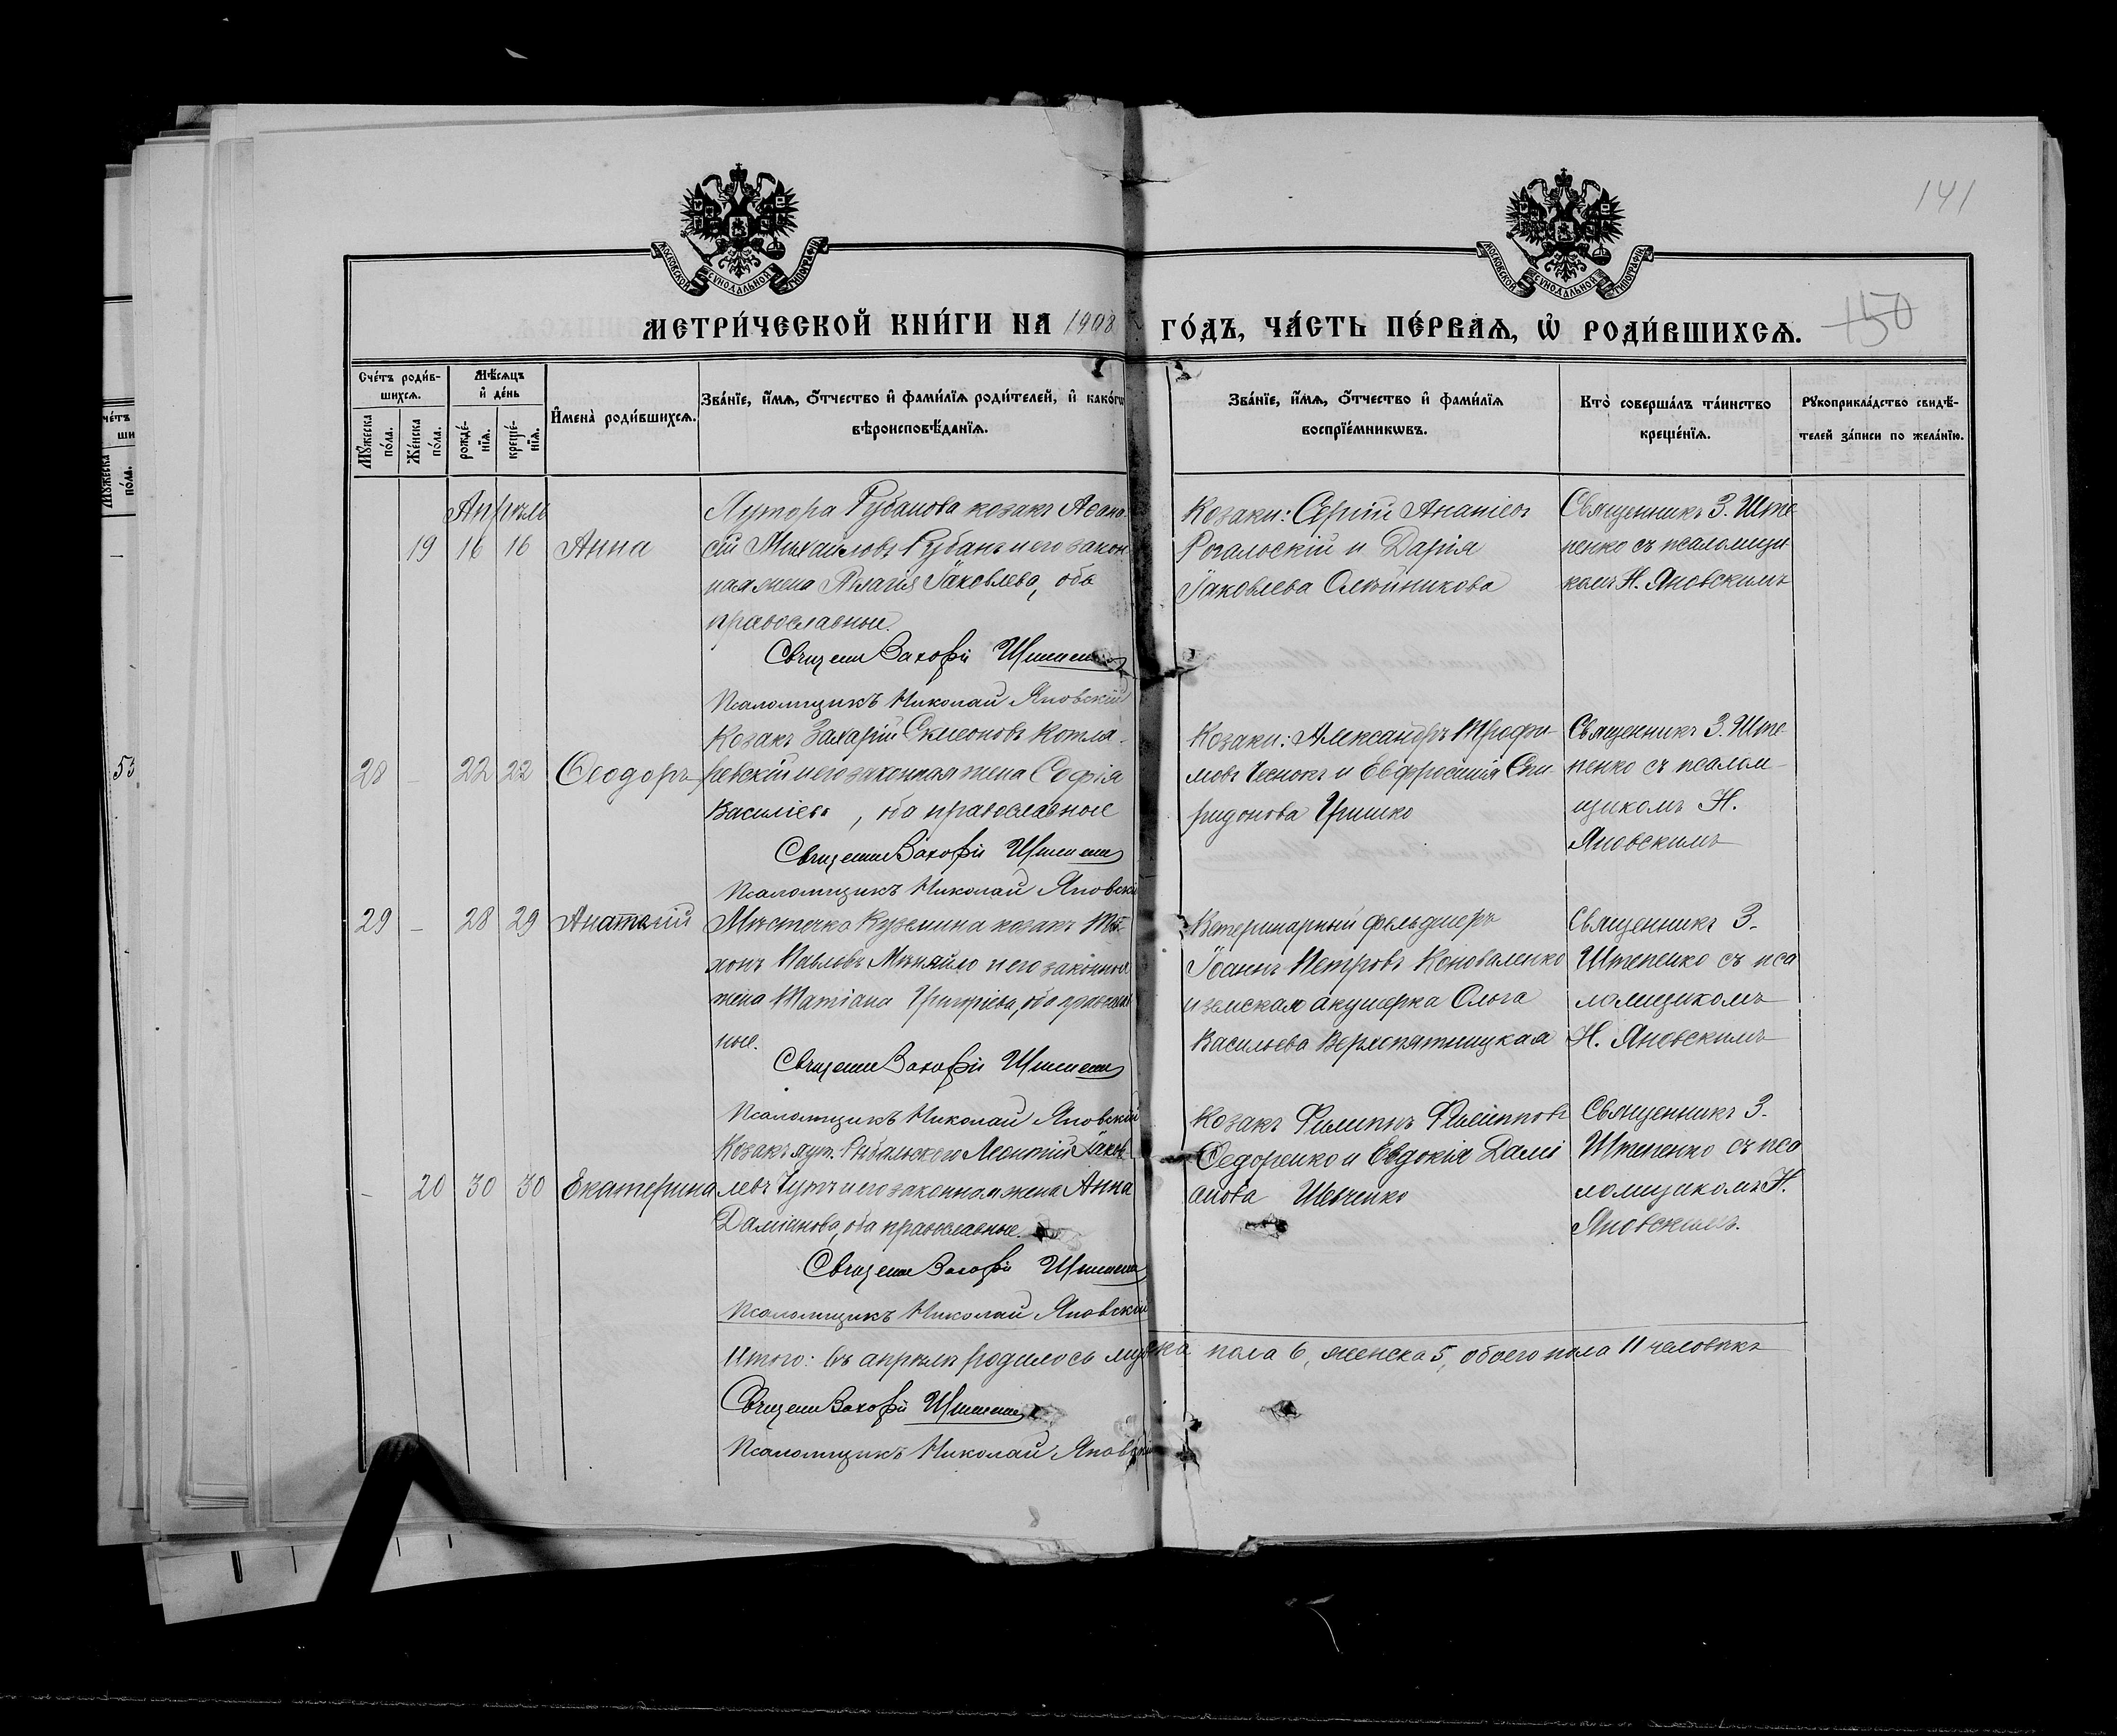 141
МОСКОВСКОЙ СѴНОДАЛЬНОЙ ТИПОГРАФІИ
МОСКОВСКОЙ СѴНОДАЛЬНОЙ ТИПОГРАФІИ
МЕТРИ́ЧЕСКОЙ КНИ́ГИ НА 1908 ГО́ДЪ, ЧА́СТЬ ПЕ́РВАѦ, Ѽ РОДИ́ВШИХСѦ.
150
Сче́тъ роди́в-
шихсѧ.
Мꙋ́жеска по́ла.
Же́нска по́ла.
Мѣ́сѧцъ
и҆ де́нь
рожде́-
нїѧ.
креще́-
нїѧ.
И҆мена̀ роди́вшихсѧ.
Зва́нїе, и҆́мѧ, ѻ҆́тчество и҆ фами́лїѧ роди́телей, и҆ како́гѡ
вѣроисповѣ́данїѧ.
Зва́нїе, и҆́мѧ, ѻ҆́тчество и҆ фами́лїѧ
воспрїе́мникѡвъ.
Кто̀ соверша́лъ та́инство
креще́нїѧ.
Рꙋкоприкла́дство свидѣ́-
телей за́писи по жела́нїю.
Апрѣль
19 16 16 Анна
Хутора Рубанова козакъ Аѳана-
сій Михайловъ Рубанъ и его закон
ная жена Пелагія Іаковлева, оба
православные.
Священ Захарій Штепенко
Псаломщикъ Николай Яновскій
Козаки: Сергій Ананіевъ
Рогальскій и Дарія
Іаковлева Олѣйникова
Священникъ З.Ште
пенко съ псаломщи
комъ Н. Яновскимъ
28 - 22 22 Ѳеодоръ
Козакъ Захарій Симеоновъ Котля-
ревскій и его законная жена Софія
Василіева, оба православные
Священ Захарій Штепенко
Псаломщикъ Николай Яновскій
Козаки: Александръ Трофи-
мовъ Чеснокъ и Евфросинія Спи-
ридонова Гришко
Священникъ З. Ште
пенко съ псалом-
щикомъ Н.
Яновскимъ
29 - 28 29 Анатолій
Мѣстечка Куземина козакъ Ти-
хонъ Павловъ Мѣняйло и его законная
жена Татіана Григоріева, оба православ
ные.
Священ Захарій Штепенко
Псаломщикъ Николай Яновскій
Ветеринарный фельдшеръ
Іоаннъ Петровъ Коноваленко
и земская акушерка Ольга
Васильева Верхопятницкая
Священникъ З.
Штепенко съ пса
ломщикомъ
Н. Яновскимъ
- 20 30 30 Екатерина
Козакъ хут. Рыбальского Леонтій Іаков
левъ Чутъ и его законная жена Анна
Даміанова, оба православные.
Священ Захарій Штепенко
Псаломщикъ Николай Яновскій
Козакъ Филиппъ Филипповъ
Ѳедоренко и Евдокія Дамі
анова Шевченко
Священникъ З.
Штепенко съ пса
ломщикомъ Н.
Яновскимъ.
Итого: въ апрѣлѣ родилось мужска пола 6, женска 5, обоего пола 11 человѣкъ
Священ Захарій Штепенко
Псаломщикъ Николай Яновскій